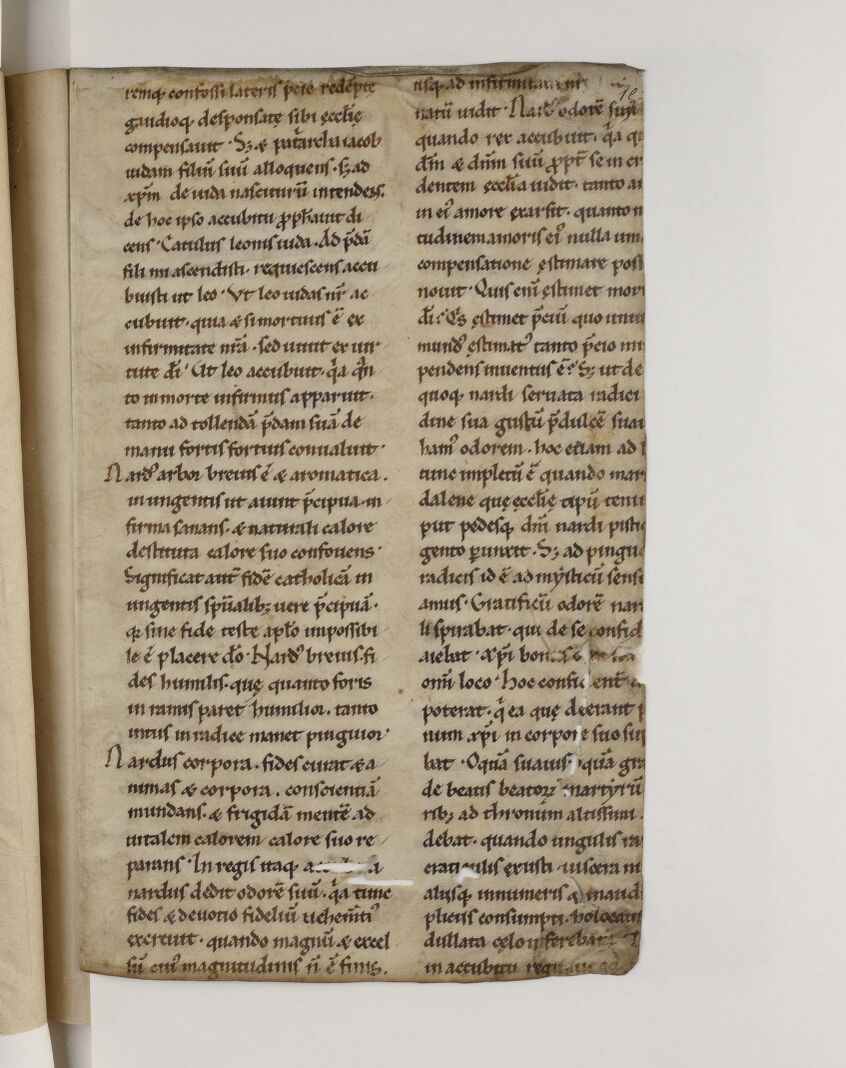 remq; confossi lateris p̄cio redēpte
gaudioq; desponsatę sibi ęcclię
compensauit · S; & pat̾archa iacob
uidam filiū suū alloquens · s; ad
xp̄m de uida nasciturū intendens.
de hoc ipso accubitu ꝓph̄auit di
cens · Catulus leonis uida · Ad p̄dā
fili mi ascendisti · requiescens accu
buisti ut leo · Vt leo uidas nr̄ ac
cubuit · quia & si mortuus ē ex
infirmitate nr̄a · sed uiuit ex uir
tute dī · Ut leo accubuit · q̾a q̄n
to in morte infirmus apparuit ·
tanto ad tollendā p̄dam suā de
manu fortis fortius conualuit ·
Nard᾽ arbor breuis ē & aromatica ·
in ungentis ut aiunt p̄cipua · in
firma sanans · & naturali calore
destituta calore suo confouens ·
Significat aut̄ fidē catholicā in
ungentis sp̄ualib; uere p̄cipuā ·
qr̄ sine fide teste apl̄o impossibi
le ē placere dō · Nard᾽ breuis · fi
des humilis · quę quanto foris
in ramis paret humilior · tanto
intus in radice manet pinguior ·
Nardus corpora · fides curat & a
nimas & corpora · conscientiā
mundans · & frigidā mentē ad
uitalem calorem calore suo re
parans · In regis itaq;
nardus dedit odorē suū · q̾a tunc
fides & deuotio fideliū uehem̄ti᾽
excreuit · quando magnū & excel
sū cui᾽ magnitudinis n̄ ē finis,
usq; ad infirmitatem nr̄
18
natū uidit · Nard᾽ odorē suū
quando rex accubuit · q̾a
dm̄ & dnm̄ suū ꝓpt̄ se in cr
dentem ęccl̄ia uidit · tanto
in ei᾽ amore exarsit · quanto
tudinem amoris ei᾽ nulla um
compensatione ęstimare poss
nouit · Quis enī ęstimet mor
dī? Q's ęstimet p̄ciū quo uniu
mund᾽ ęstimat᾽ tanto p̄cio
pendens inuentus ē? S; ut de
quoq; nardi seruata radici
dine sua gustū p̄dulcē suaui
ham᾽ odorem · hoc etiam ad
tunc impletū ē quando mar
dalene quę ęcclię tipū tenu
put pedesq; dnī nardi pisti
gento ꝑunxit · S; ad pingue
radicis id ē ad mysticū sensū
amus · Gratificū odorē nar
li spirabat · qui de se confid
aiebat · xp̄i bon
omī loco · Hoc
poterat · q̾ ea quę deerant
num xp̄i in corpore suo
bat · O quā suauis · quā gra
de beatis beatoꝝ martyrū
rib; ad thronum altissimi ·
debat · quando ungulis
craticulis exusti · uiscera
aliisq; innumeris & inaudi
plicus consumpti · holocau
dullata celo
in accubitu